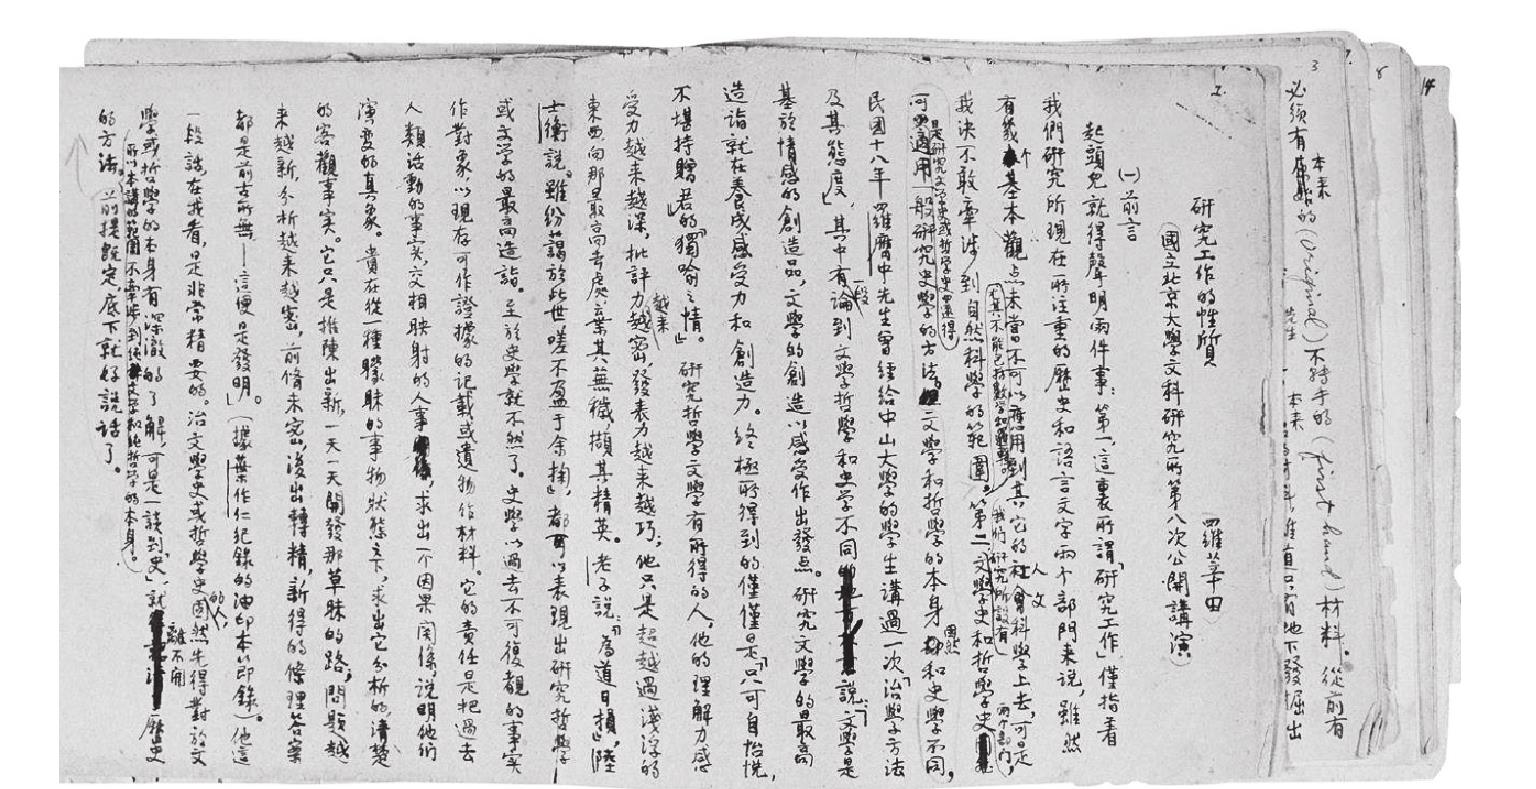 研究工作的性質 羅莘田
國立北京大學文科研究所第八次公開講演
(一)前言
起頭兒就得聲明兩件事:第一,這裏所謂,研究工作,僅指着
我們研究所現在所注重的歷史和語言文字兩个部門来說,雖然
有幾个基本觀点未嘗不可以應用到其它的人文科學上去,可是
我决不敢牽涉到自然科學的範圍。第二文學史和哲學史
可適用一般研究史學的方法,文學和哲學的本身固然和史學不同,
是研究文學史或哲學史還得
我們研究所設有
兩个部門
民國十八年羅膺中先生曾經給中山大學的學生講過一次「治學方法
及其態度」,其中有一段論到文學哲學和史学不同說:「文學是
基於情感的創造品,文學的創造以感受作出發点。研究文學的最高
造詣就在養成感受力和創造力。终極所得到的僅僅是「只可自怡悅,
不堪持贈君」的「獨喻之情」。研究哲學文學有所得的人,他的理解力感
受力越来越深,批評力越来越密,發表力越来越巧;他只是超越過淺浮的
東西向那最高向去處,去其蕪穢,擷其精英。老子說:「為道日損」,陸
士衡說:「雖紛藹於此世嗟不盈于余掬」,都可以表現出研究哲學
或文学的最高造詣。至於史學就不然了。史學以過去不可復覩的事实
作對象,以現存可作證據的記載或遺物作材料。它的責任是把過去
人類活動的事实,交相映射的人事,求出一个因果関係,說明他們
演变的真象。貴在從一種朦昧的事物狀態之下,求出它分析的,清楚
的客觀事实。它只是推陳出新,一天一天開發那草昧的路;問題越
来越新,分析越来越密,前脩未密,後出轉精,新得的條理答案
都是前古所無——這便是發明」。(據葉作仁紀錄的油印本節錄)。他這
一段話,在我看,是非常精要的。治文學史或哲學史的人,固然先得對於文
學或哲學的本身有深澈的了解,可是一談到「史」,就離不開歷史
的方法。前提既定,底下就好說話了。
所以本講的範圍不牽涉到純文學和純哲學的本身。
2
3
7
8
14
必須有本来的(original)不轉手的(first hand)材料。從前有
先生
本来
地下發掘出